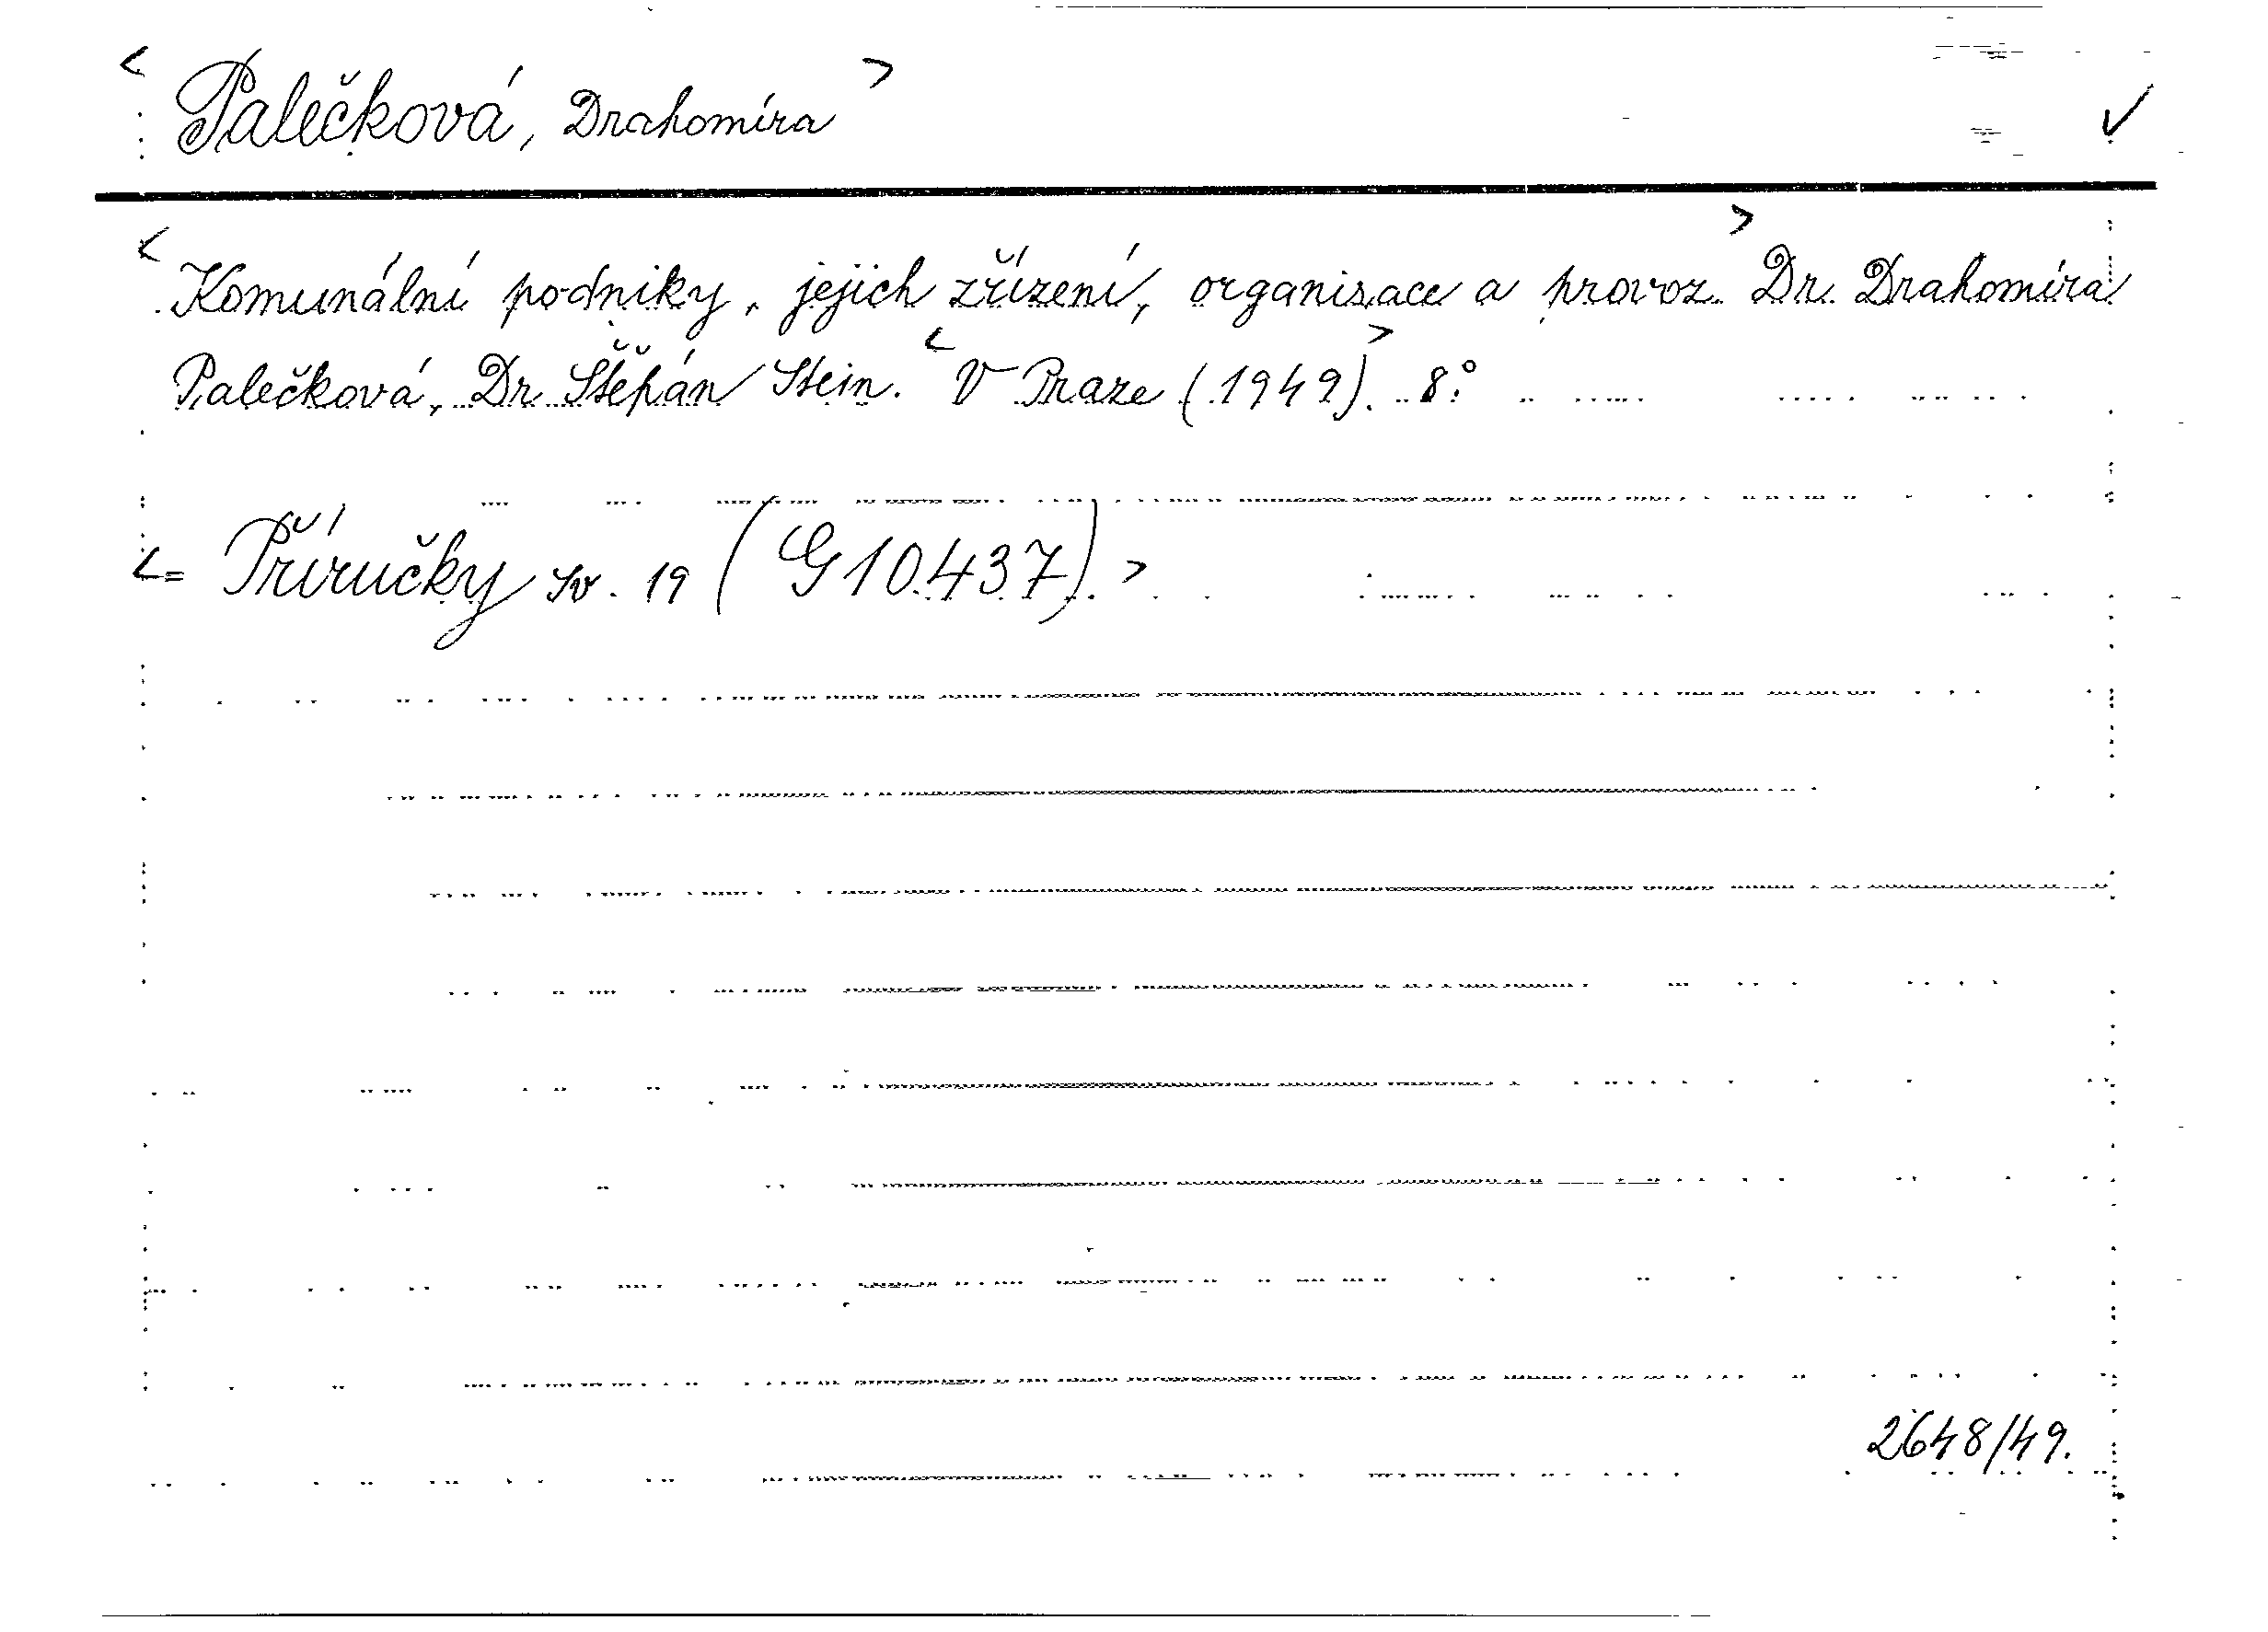 < Palečková, Drahomíra > ✓
< Komunální podniky, jejich zřízení, organisace a provoz. > Dr. Drahomíra
Palečková, Dr. Štěpán Stein. < V Praze (1949). > 8°.
< = Příručky sv. 19 (G 10.437). >
2648/49.